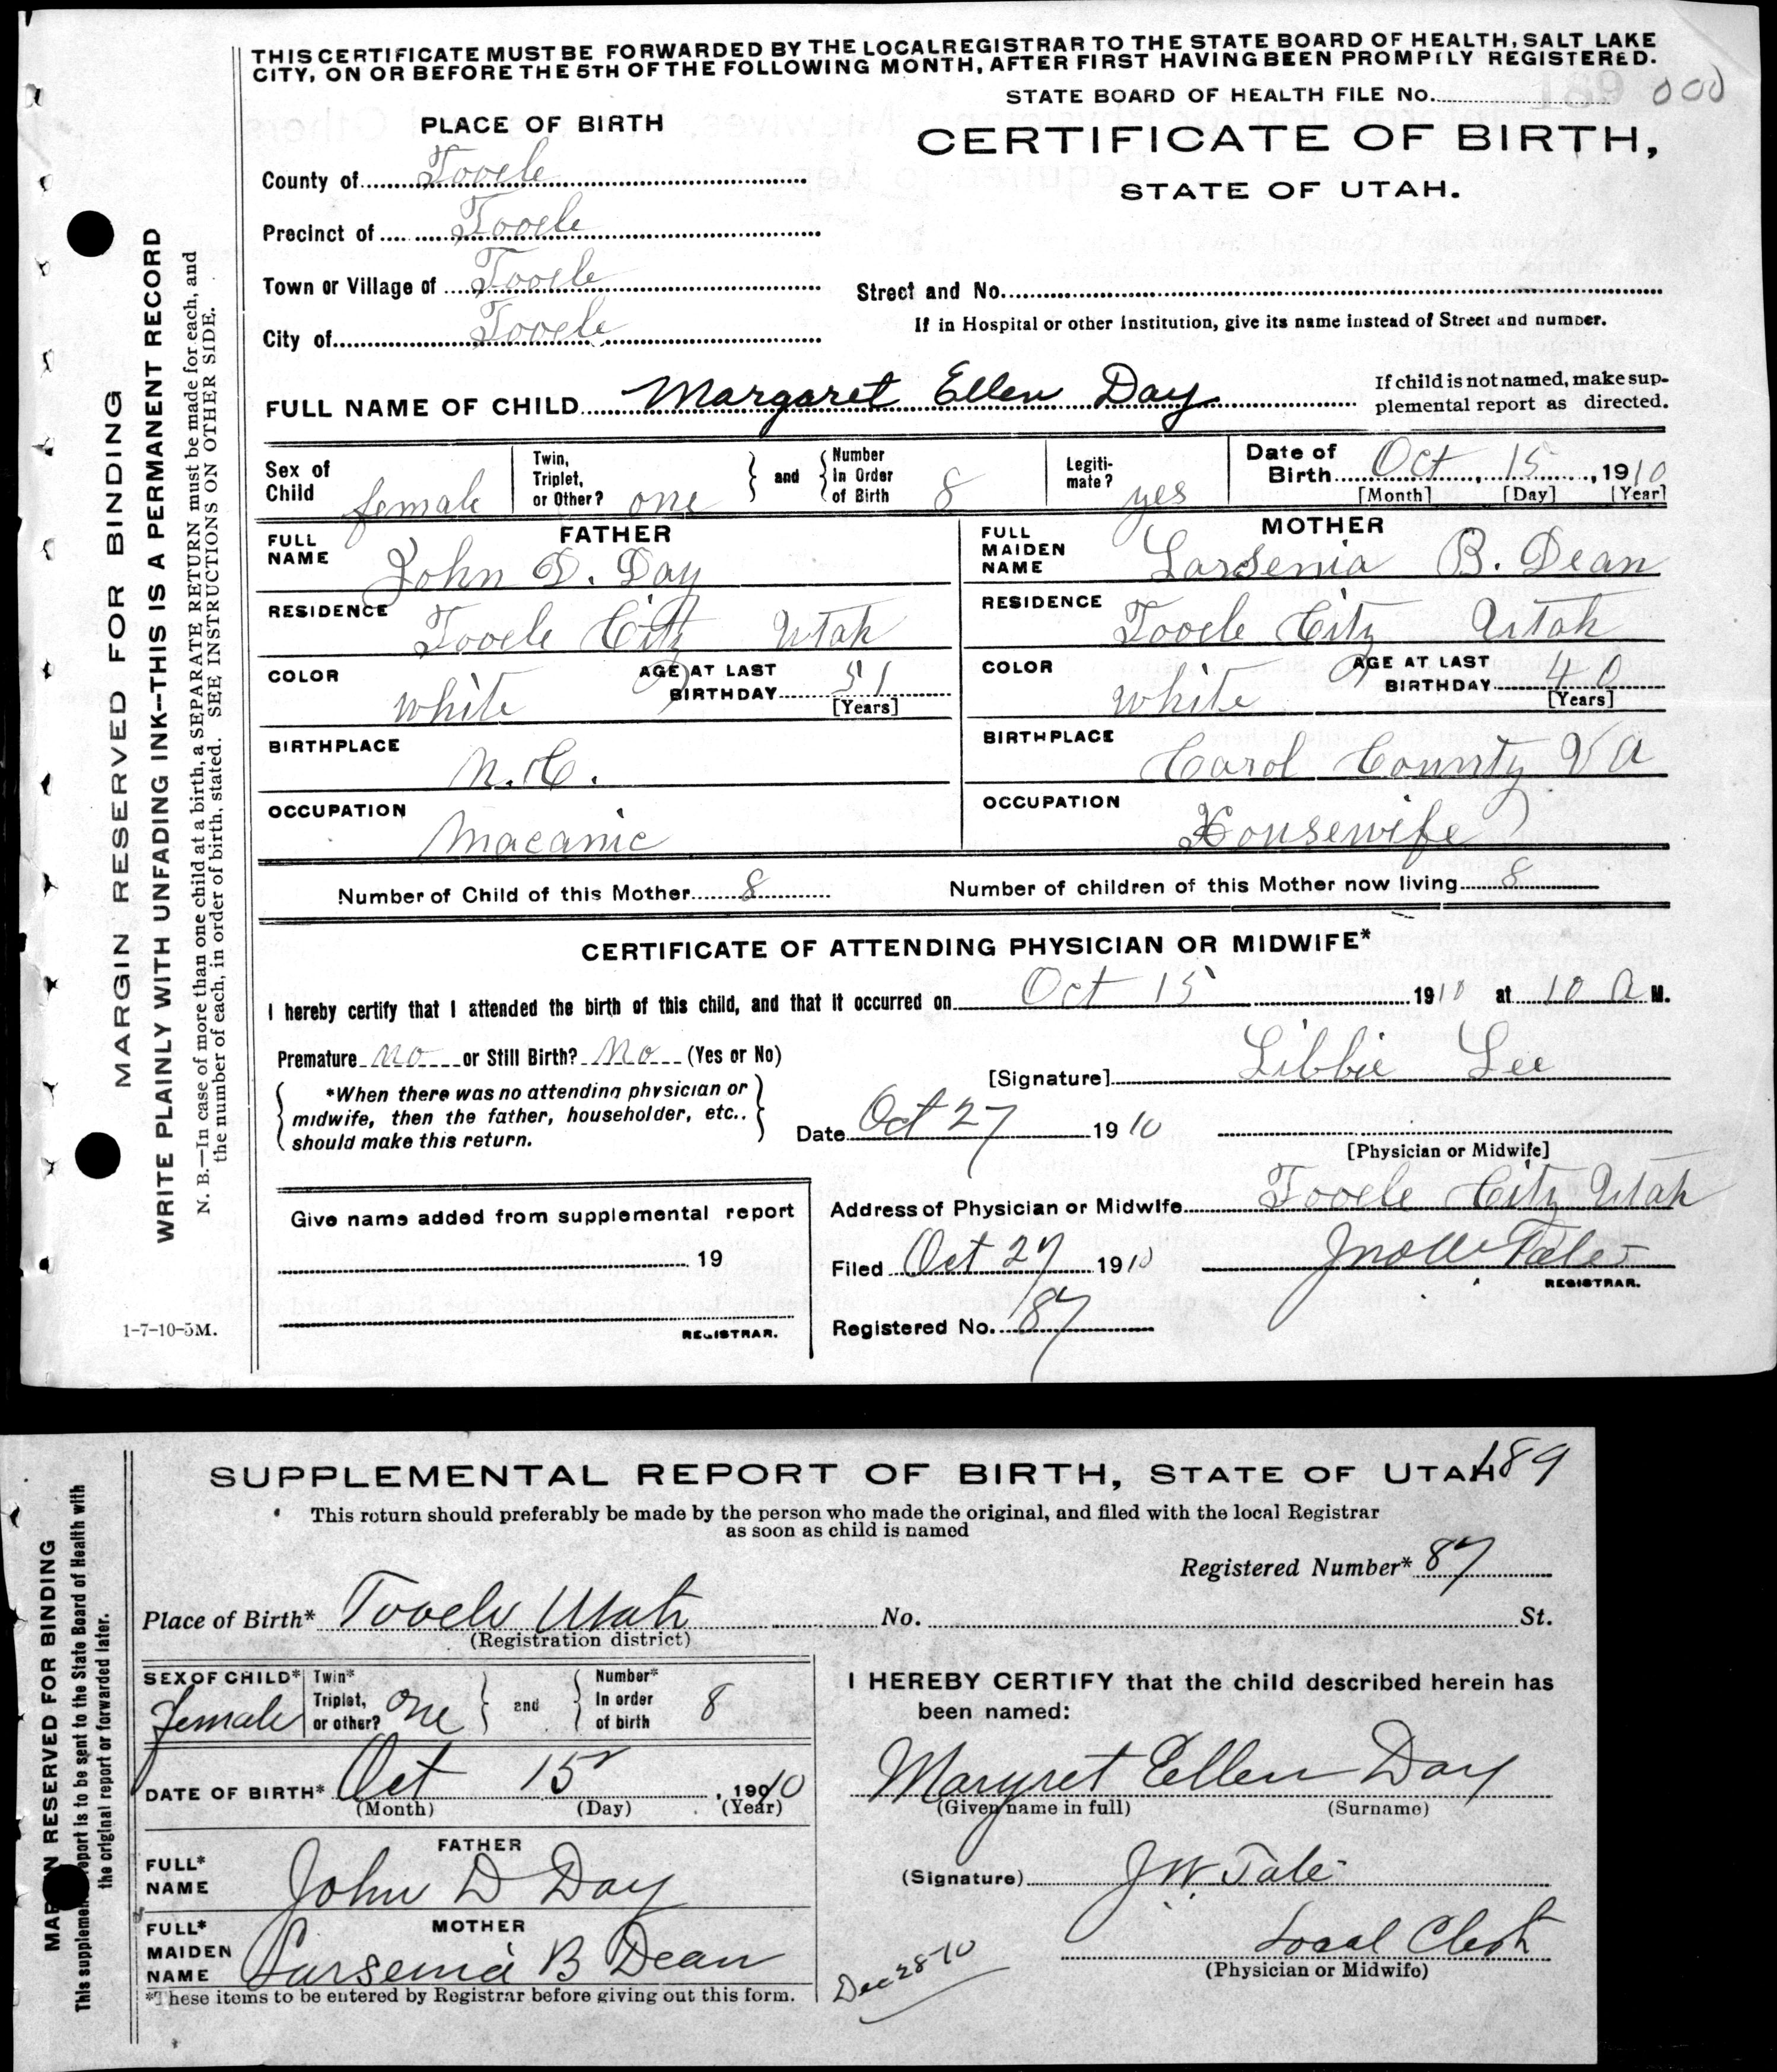 THIS CERTIFICATE MUST BE FORWARDED BY THE LOCAL REGISTRAR TO THE STATE BOARD OF HEALTH, SALT LAKE
CITY, ON OR BEFORE THE 5TH OF THE FOLLOWING MONTH, AFTER FIRST HAVING BEEN PROMPTLY REGISTERED.
STATE BOARD OF HEALTH FILE No. 189 000
PLACE OF BIRTH
CERTIFICATE OF BIRTH,
STATE OF UTAH.
County of Tooele
Precinct of Tooele
Town or Village of Tooele
Street and No.
If in Hospital or other institution, give its name instead of Street and number.
City of Tooele
FULL NAME OF CHILD Margaret Ellen Day
If child is not named, make sup-
plemental report as directed.
Sex of Child female
Twin, Triplet, or Other? one
and Number In Order of Birth 8
Legiti-mate? yes
Date of Birth Oct 15, 1910
[Month] [Day] [Year]
FATHER
FULL NAME John D. Day
RESIDENCE Tooele City Utah
COLOR white
AGE AT LAST BIRTHDAY 51
[Years]
BIRTHPLACE N.C.
OCCUPATION Macanic
MOTHER
FULL MAIDEN NAME Larsenia B. Dean
RESIDENCE Tooele City Utah
COLOR white
AGE AT LAST BIRTHDAY 40
[Years]
BIRTHPLACE Carol County VA
OCCUPATION Housewife
Number of Child of this Mother 8
Number of children of this Mother now living 8
CERTIFICATE OF ATTENDING PHYSICIAN OR MIDWIFE*
I hereby certify that I attended the birth of this child, and that it occurred on Oct 15 1910 at 10 A M.
Premature no or Still Birth? No (Yes or No)
*When there was no attending physician or
midwife, then the father, householder, etc..
should make this return.
[Signature] Libbie Lee
Date Oct 27 1910
[Physician or Midwife]
Address of Physician or Midwife Tooele City Utah
Give name added from supplemental report
19
REGISTRAR.
Filed Oct 27 1910
Jno W Tate
REGISTRAR.
Registered No. 87
1-7-10-5M.
MARGIN RESERVED FOR BINDING
WRITE PLAINLY WITH UNFADING INK--THIS IS A PERMANENT RECORD
N. B.—In case of more than one child at a birth, a SEPARATE RETURN must be made for each, and
the number of each, in order of birth, stated. SEE INSTRUCTIONS ON OTHER SIDE.
SUPPLEMENTAL REPORT OF BIRTH, STATE OF UTAH 189
This return should preferably be made by the person who made the original, and filed with the local Registrar
as soon as child is named
Registered Number* 87
Place of Birth* Tooele Utah No. St.
(Registration district)
SEX OF CHILD* female
Twin* Triplet, or other? One
and Number* In order of birth 8
DATE OF BIRTH* Oct 15, 1910
(Month) (Day) (Year)
FATHER
FULL* NAME John D Day
MOTHER
FULL* MAIDEN NAME Larsenia B Dean
*These items to be entered by Registrar before giving out this form.
I HEREBY CERTIFY that the child described herein has
been named:
Margret Ellen Day
(Given name in full) (Surname)
(Signature) J W Tate
Local Clerk
(Physician or Midwife)
Dec 28-10
MARGIN RESERVED FOR BINDING
This supplemental report is to be sent to the State Board of Health with
the original report or forwarded later.